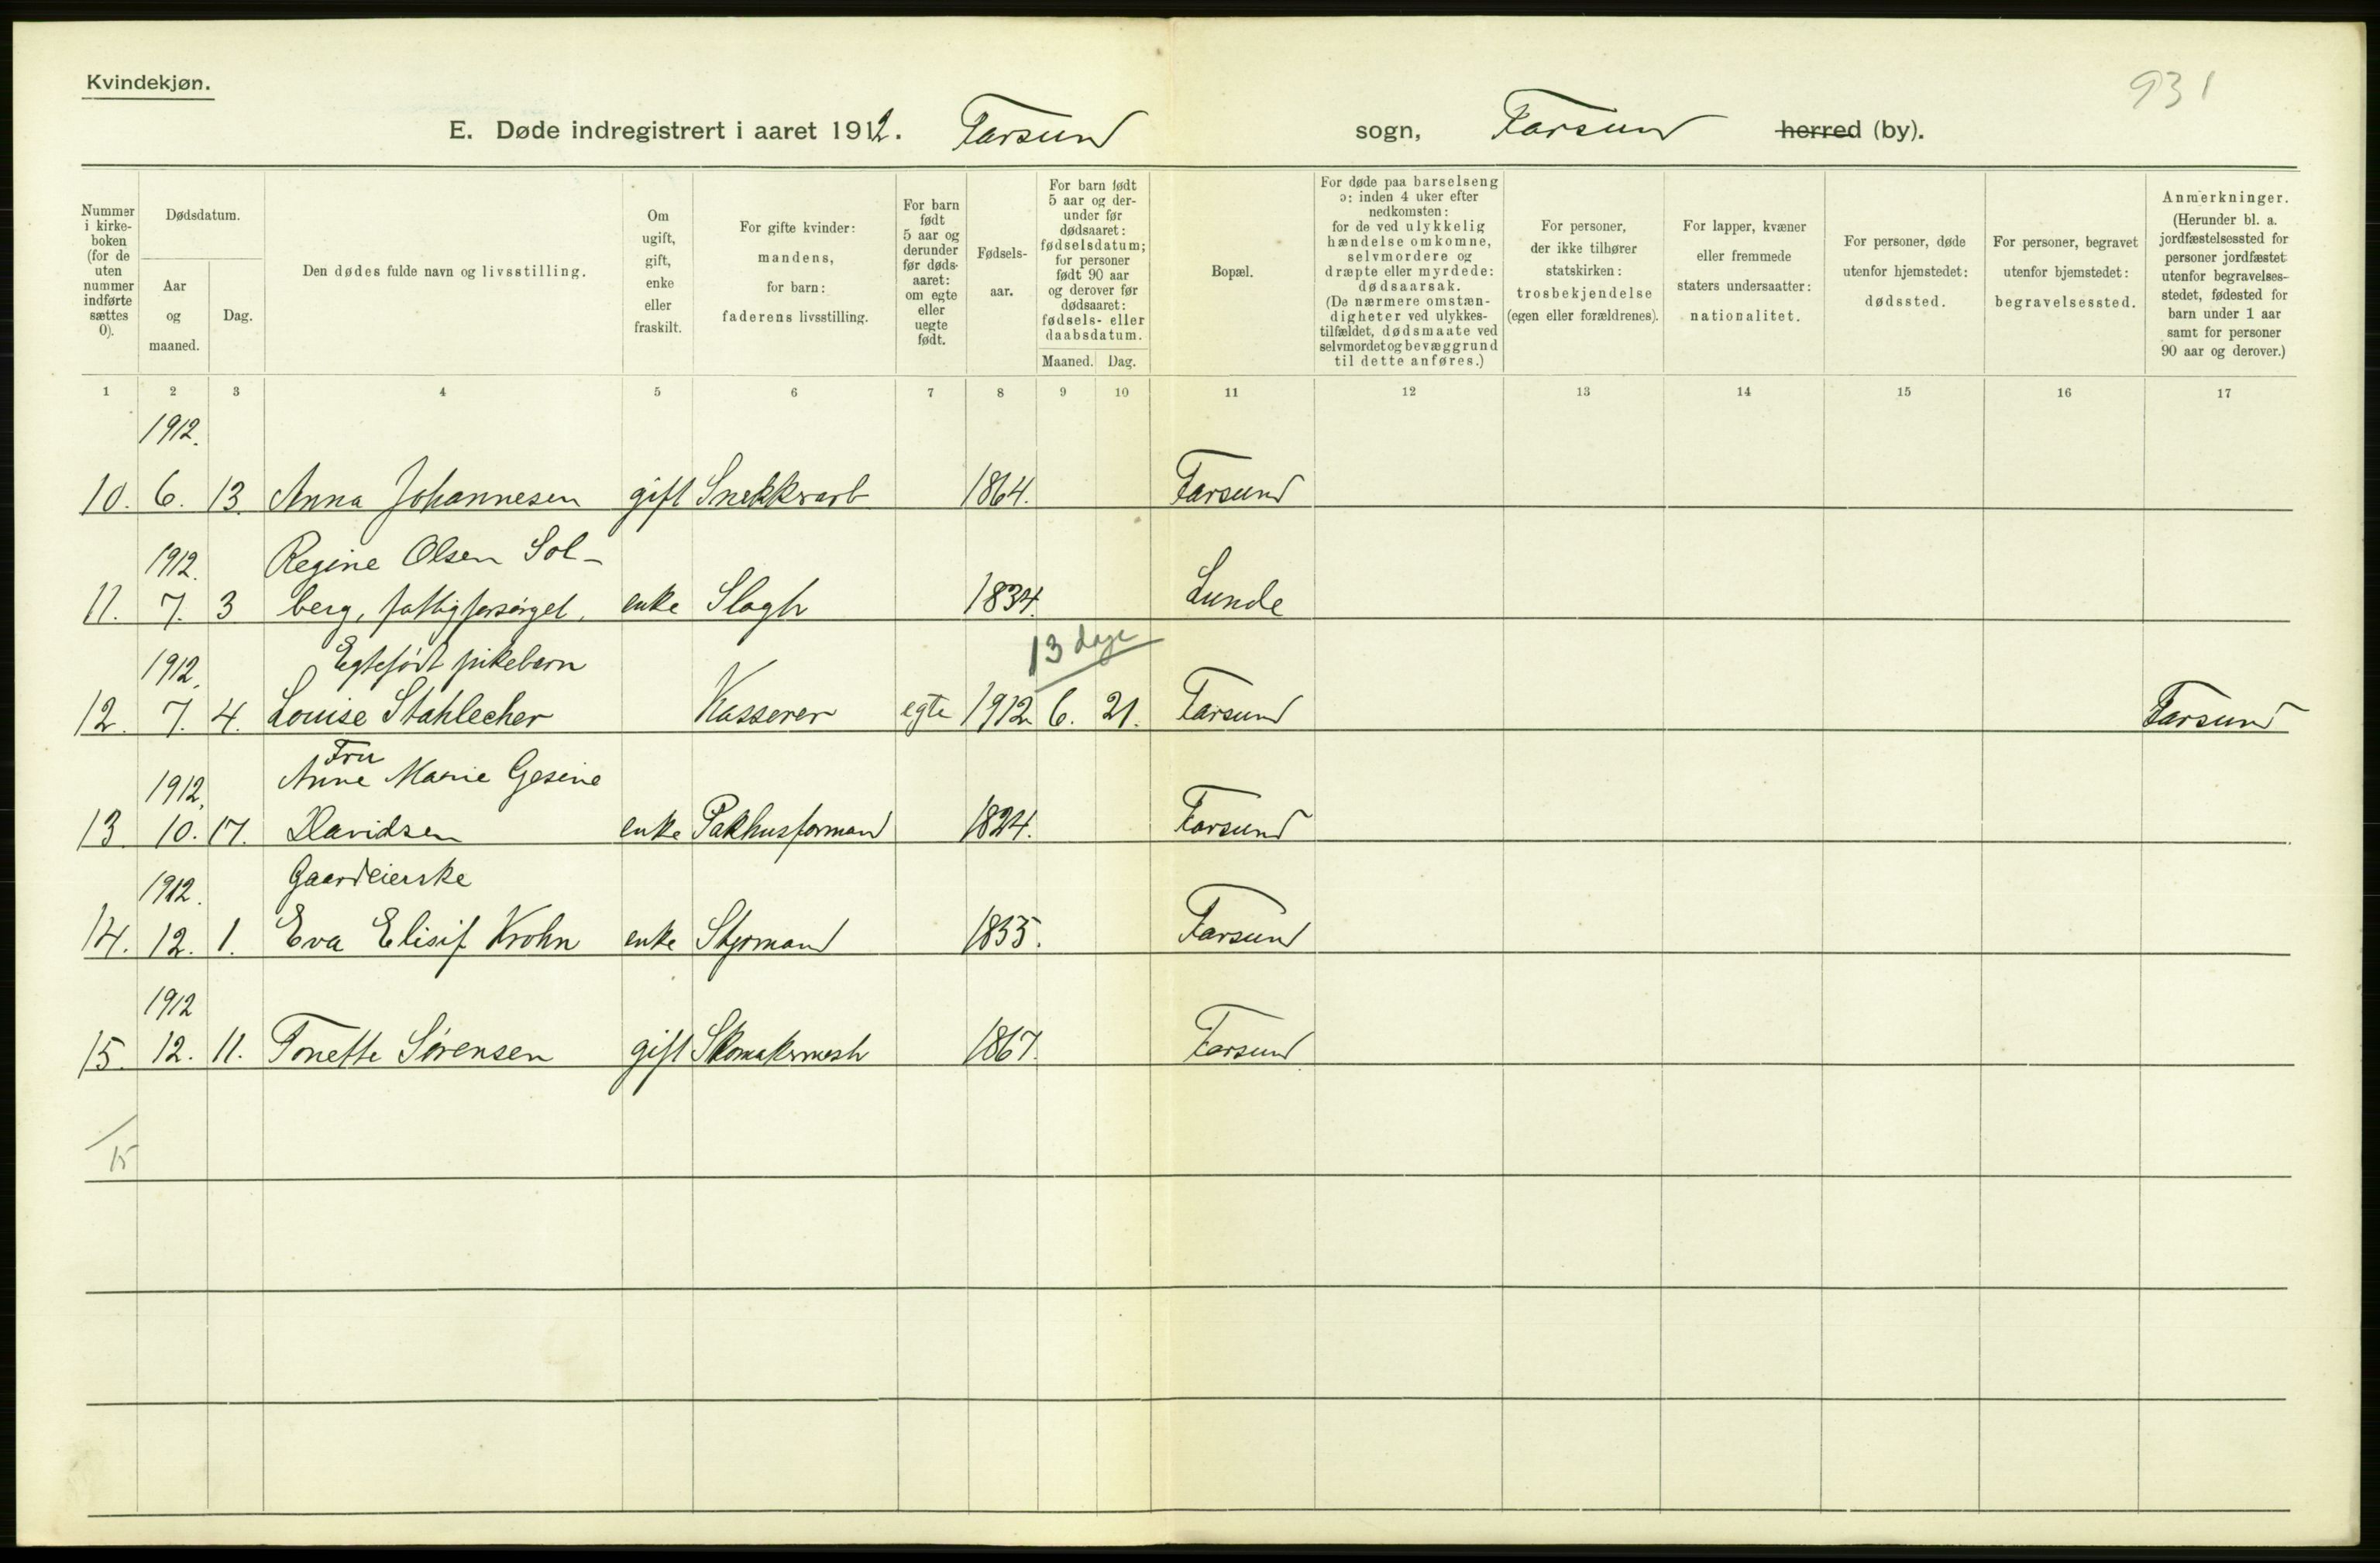 Kvindekjøn.
931
E. Døde indregistrert i aaret 1912. Farsund sogn, Farsund herred (by).
Nummer i kirke-boken (for de uten nummer indførte sættes 0).
Dødsdatum.
Aar og maaned.
Dag.
Den dødes fulde navn og livsstilling.
Om ugift, gift, enke eller fraskilt.
For gifte kvinder: mandens, for barn: faderens livsstilling.
For barn født 5 aar og derunder før døds-aaret: om egte eller uegte født.
Fødsels-aar.
For barn født 5 aar og der-under før dødsaaret: fødselsdatum; for personer født 90 aar og derover før dødsaaret: fødsels- eller daabsdatum.
Maaned. Dag.
Bopæl.
For døde paa barselseng ɔ: inden 4 uker efter nedkomsten: for de ved ulykkelig hændelse omkomne, selvmordere og dræpte eller myrdede: dødsaarsak. (De nærmere omstæn-digheter ved ulykkes-tilfældet, dødsmaate ved selvmordet og bevæggrund til dette anføres.)
For personer, der ikke tilhører statskirken: trosbekjendelse (egen eller forældrenes).
For lapper, kvæner eller fremmede staters undersaatter: nationalitet.
For personer, døde utenfor hjemstedet: dødssted.
For personer, begravet utenfor bjemstedet: begravelsessted.
Anmerkninger. (Herunder bl. a. jordfæstelsessted for personer jordfæstet utenfor begravelses-stedet, fødested for barn under 1 aar samt for personer 90 aar og derover.)
1 2 3 4 5 6 7 8 9 10 11 12 13 14 15 16 17
1912.
10. 6. 13. Anna Johannesen gift Snekkerarb 1864. Farsund
1912. Regine Olsen Sol-
11. 7. 3 berg, fattigforsørget, enke Slagtr 1834. Lunde
1912. Egtefødt pikebarn 13 dage
12. 7. 4. Louise Stahlecher Kasserer egte 1912. 6. 21. Farsund Farsund
Fru
1912. Anne Marie Gesine
13. 10. 17. Davidsen enke Pakhusformand 1824. Farsund
1912. Gaardeierske
14. 12. 1. Eva Elisif Krohn enke Styrmand 1835. Farsund
1912
15. 12. 11. Tonette Sørensen gift Skomakermestr 1867. Farsund
15